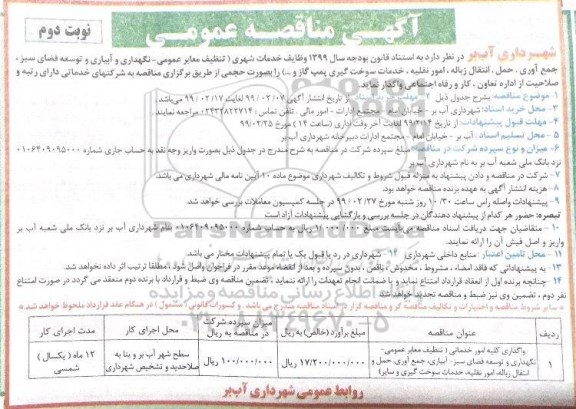 آگهی مناقصه عمومی
نوبت دوم
شهرداری آب‌بر در نظر دارد به استناد قانون بودجه سال ۱۳۹۹ وظایف خدمات شهری ( تنظیف معابر عمومی - نگهداری و آبیاری و توسعه فضای سبز ،
جمع آوری ، حمل ، انتقال زباله ، امور نقلیه ، خدمات سوخت گیری پمپ گاز و ... ) را بصورت حجمی از طریق برگزاری مناقصه به شرکتهای خدماتی دارای رتبه و
صلاحیت از اداره تعاون ، کار و رفاه اجتماعی واگذار نماید.
۱- موضوع مناقصه: بشرح جدول ذیل ۲- مهلت از تاریخ انتشار آگهی ۹۹/۰۲/۰۷ لغایت ۹۹/۰۲/۱۷ می‌باشد.
۳- محل خرید اسناد: شهرداری آب بر - خیابان امام - مجتمع ادارات - امور مالی - تلفن تماس: ۰۲۴۳۴۸۲۲۷۱۴ مراجعه نمایند.
۴- مهلت قبول پیشنهادات: از تاریخ لغایت آخر وقت اداری (ساعت ۱۴) مورخ ۹۹/۰۲/۲۵
۵- محل تسلیم اسناد: آب بر - خیابان امام - مجتمع ادارات دبیرخانه شهرداری آب‌بر
۶- میزان و نوع سپرده شرکت در مناقصه: مبلغ سپرده شرکت در مناقصه به شرح مندرج در جدول ذیل بصورت واریز وجه نقد به حساب جاری شماره ۰۱۰۶۴۰۹۰۹۵۰۰۰
نزد بانک ملی شعبه آب بر به نام شهرداری آب‌بر
۷- شرکت در مناقصه و دادن پیشنهاد به منزله قبول شروط و تکالیف شهرداری موضوع ماده ۱۰ آیین نامه مالی شهرداری می باشد.
۸- هزینه انتشار آگهی به عهده برنده مناقصه خواهد بود.
۹- پیشنهادات واصله راس ساعت ۱۰/۳۰ روز شنبه مورخ ۹۹/۰۲/۲۷ در جلسه کمیسیون معاملات بررسی خواهد شد.
تبصره: حضور هر کدام از پیشنهاد دهندگان در جلسه بررسی و بازگشایی پیشنهادات آزاد است
۱۰- متقاضیان جهت دریافت اسناد مناقصه می باشند مبلغ ۱/۰۰۰/۰۰۰ ریال به حساب شماره ۰۱۰۶۴۰۹۰۹۵۰۰۰ بنام شهرداری آب بر نزد بانک ملی شعبه آب بر
واریز و اصل فیش آن را ارائه نمایند.
۱۱- محل تامین اعتبار: منابع داخلی شهرداری ۱۴- شهرداری در رد یا قبول یک یا تمام پیشنهادات مختار می باشد.
۱۳- به پیشنهاداتی که فاقد امضاء ، مشروط ، مخدوش ، ناقص ، بدون سپرده و بعد از انقضاء موعد مقرر در فراخوان وصول شود ، مطلقا ترتیب اثر داده نخواهد شد.
۱۴- چنانچه برنده اول از انعقاد قرارداد امتناع نماید و یا ضمانت انجام تعهدات را ارائه ننماید ، تضمین مناقصه وی ضبط و قرارداد با برنده دوم منعقد می گردد در صورت امتناع
نفر دوم ، تضمین وی نیز ضبط و مناقصه تجدید خواهد شد.
* سایر شروط مناقصه و اختیارات و تکالیف مناقصه گر و مناقصه گزار می باشد و کسورات قانونی ( مشمول ) در هنگام عقد قرارداد ملحوظ خواهد شد.*
پایگاه اطلاع رسانی مناقصه و مزایده
۰۲۱-۸۸۳۴۹۶۷۰-۵
ردیف عنوان مناقصه مبلغ برآورد (خالص) به ریال میزان سپرده شرکت در مناقصه به ریال محل اجرای کار مدت اجرای کار
۱ واگذاری کلیه امور خدماتی ( تنظیف معابر عمومی- نگهداری و توسعه فضای سبز - آبیاری، جمع آوری، حمل و انتقال زباله، امور نقلیه، خدمات سوخت گیری و سایر) ۱۷/۲۰۰/۰۰۰/۰۰۰ ریال ۱۰۰/۰۰۰/۰۰۰ ریال سطح شهر آب بر و بنا به صلاحدید و تشخیص شهرداری ۱۲ ماه ( یکسال ) شمسی
روابط عمومی شهرداری آب‌بر